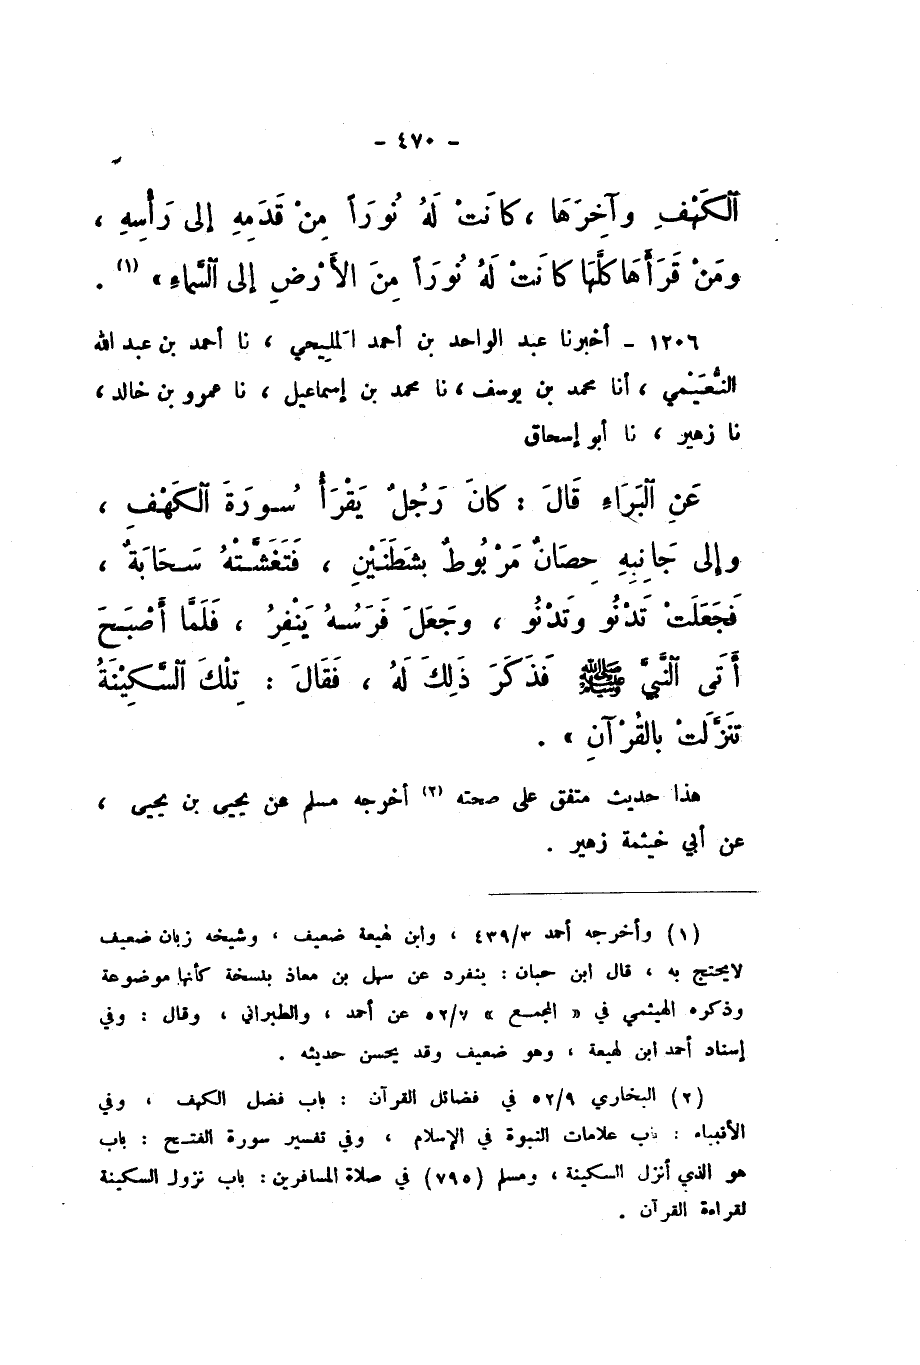 - ٤٧٠ -
ٱلْكَهْفِ وآخِرَهَا ، كانَتْ لَهُ نُورَاً مِنْ قَدَمِهِ إلى رَأْسِهِ ،
ومَنْ قَرَأَهَا كلَّهَا كانَتْ لَهُ نُورَاً مِنَ الأَرْضِ إلى ٱلسَّماءِ » (١) .
١٢٠٦ - أخبرنا عبد الواحد بن أحمد المَلِيحي ، نا أحمد بن عبد الله
النُّعَيْمي ، أنا محمد بن يوسف ، نا محمد بن إسماعيل ، نا عمرو بن خالد ،
نا زهير ، نا أبو إسحاق
عَنِ ٱلْبَرَاءِ قَالَ : كانَ رَجُلٌ يَقْرَأُ سُورَةَ ٱلْكَهْفِ ،
وإلى جَانِبِهِ حِصَانٌ مَرْبُوطٌ بشَطَنَيْنِ ، فَتَغَشَّتْهُ سَحَابَةٌ ،
فَجَعَلَتْ تَدْنُو وتَدْنُو ، وجَعَلَ فَرَسُهُ يَنْفِرُ ، فَلَمَّا أَصْبَحَ
أَتَى ٱلنَّبيَّ ﷺ فَذَكَرَ ذَلِكَ لَهُ ، فَقَالَ : تِلْكَ ٱلسَّكِيْنَةُ
تَنَزَّلَتْ بالقُرْآنِ » .
هذا حديث متفق على صحته (٢) أخرجه مسلم عن يحيى بن يحيى ،
عن أبي خيثمة زهير .
(١) وأخرجه أحمد ٤٣٩/٣ ، وابن لهيعة ضعيف ، وشيخه زبان ضعيف
لايحتج به ، قال ابن حبان : ينفرد عن سهل بن معاذ بنسخة كأنها موضوعة
وذكره الهيثمي في « المجمع » ٥٢/٧ عن أحمد ، والطبراني ، وقال : وفي
إسناد أحمد ابن لهيعة ، وهو ضعيف وقد يحسن حديثه .
(٢) البخاري ٥٢/٩ في فضائل القرآن : باب فضل الكهف ، وفي
الأنبياء : باب علامات النبوة في الإسلام ، وفي تفسير سورة الفتح : باب
هو الذي أنزل السكينة ، ومسلم (٧٩٥) في صلاة المسافرين : باب نزول السكينة
لقراءة القرآن .